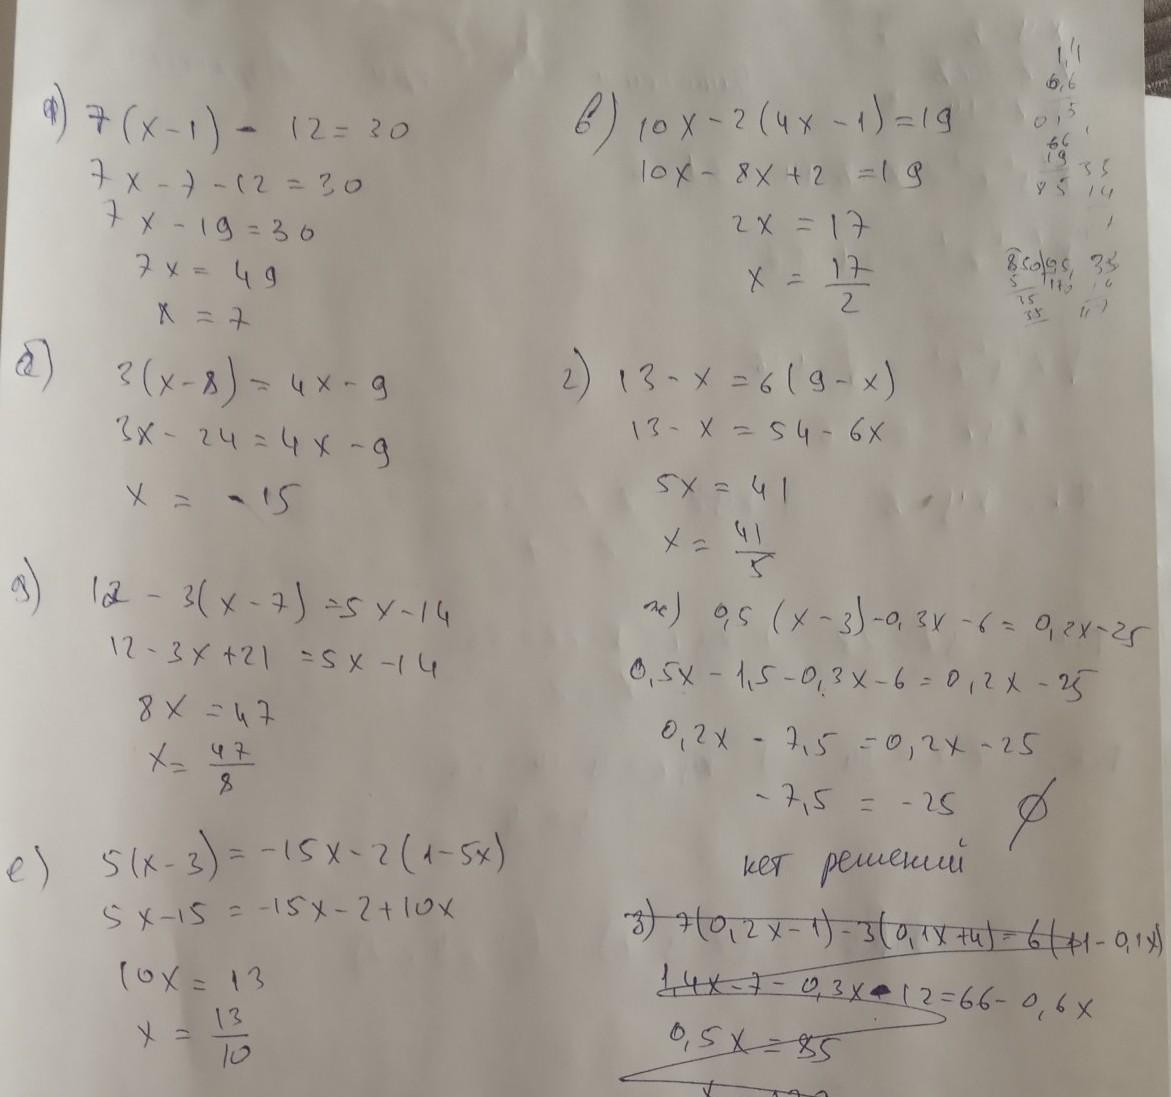 а) 7(x-1) - 12 = 30
7x - 7 - 12 = 30
7x - 19 = 30
7x = 49
x = 7
б) 3(x-8) = 4x - 9
3x - 24 = 4x - 9
x = -15
д) 12 - 3(x-7) = 5x - 14
12 - 3x + 21 = 5x - 14
8x = 47
x = 47/8
е) 5(x-3) = -15x - 2(1-5x)
5x - 15 = -15x - 2 + 10x
10x = 13
x = 13/10
в) 10x - 2(4x - 1) = 19
10x - 8x + 2 = 19
2x = 17
x = 17/2
г) 13 - x = 6(9 - x)
13 - x = 54 - 6x
5x = 41
x = 41/5
ж) 0,5(x-3) - 0,3x - 6 = 0,2x - 25
0,5x - 1,5 - 0,3x - 6 = 0,2x - 25
0,2x - 7,5 = 0,2x - 25
-7,5 = -25 ∅
нет решений
з) 7(0,2x - 1) - 3(0,1x + 4) = 6(11 - 0,1x)
1,4x - 7 - 0,3x - 12 = 66 - 0,6x
0,5x = 85
1,4
0,6
0,5
66
19
85
35
14